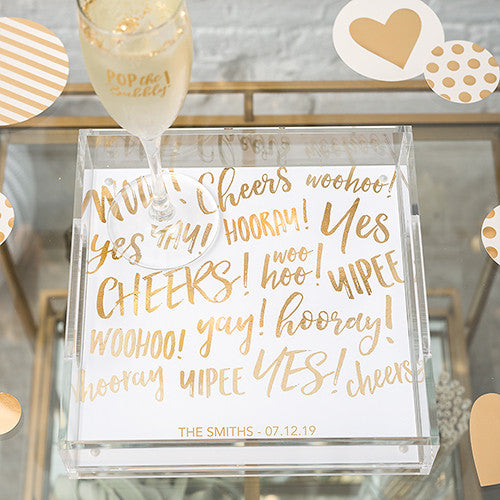 POP the
Bubbly!
WOOT! Cheers woohoo!
yes YAY! HOORAY! Yes
CHEERS! woo hoo! YIPEE
WOOHOO! yay! hooray!
hooray YIPEE YES! cheers
THE SMITHS - 07.12.19